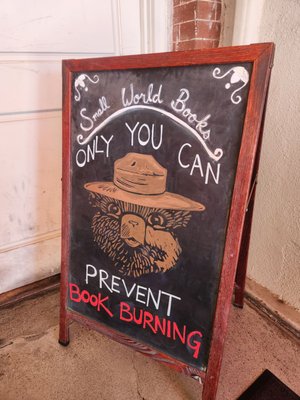 Small World Books
ONLY YOU CAN
PREVENT
BOOK BURNING